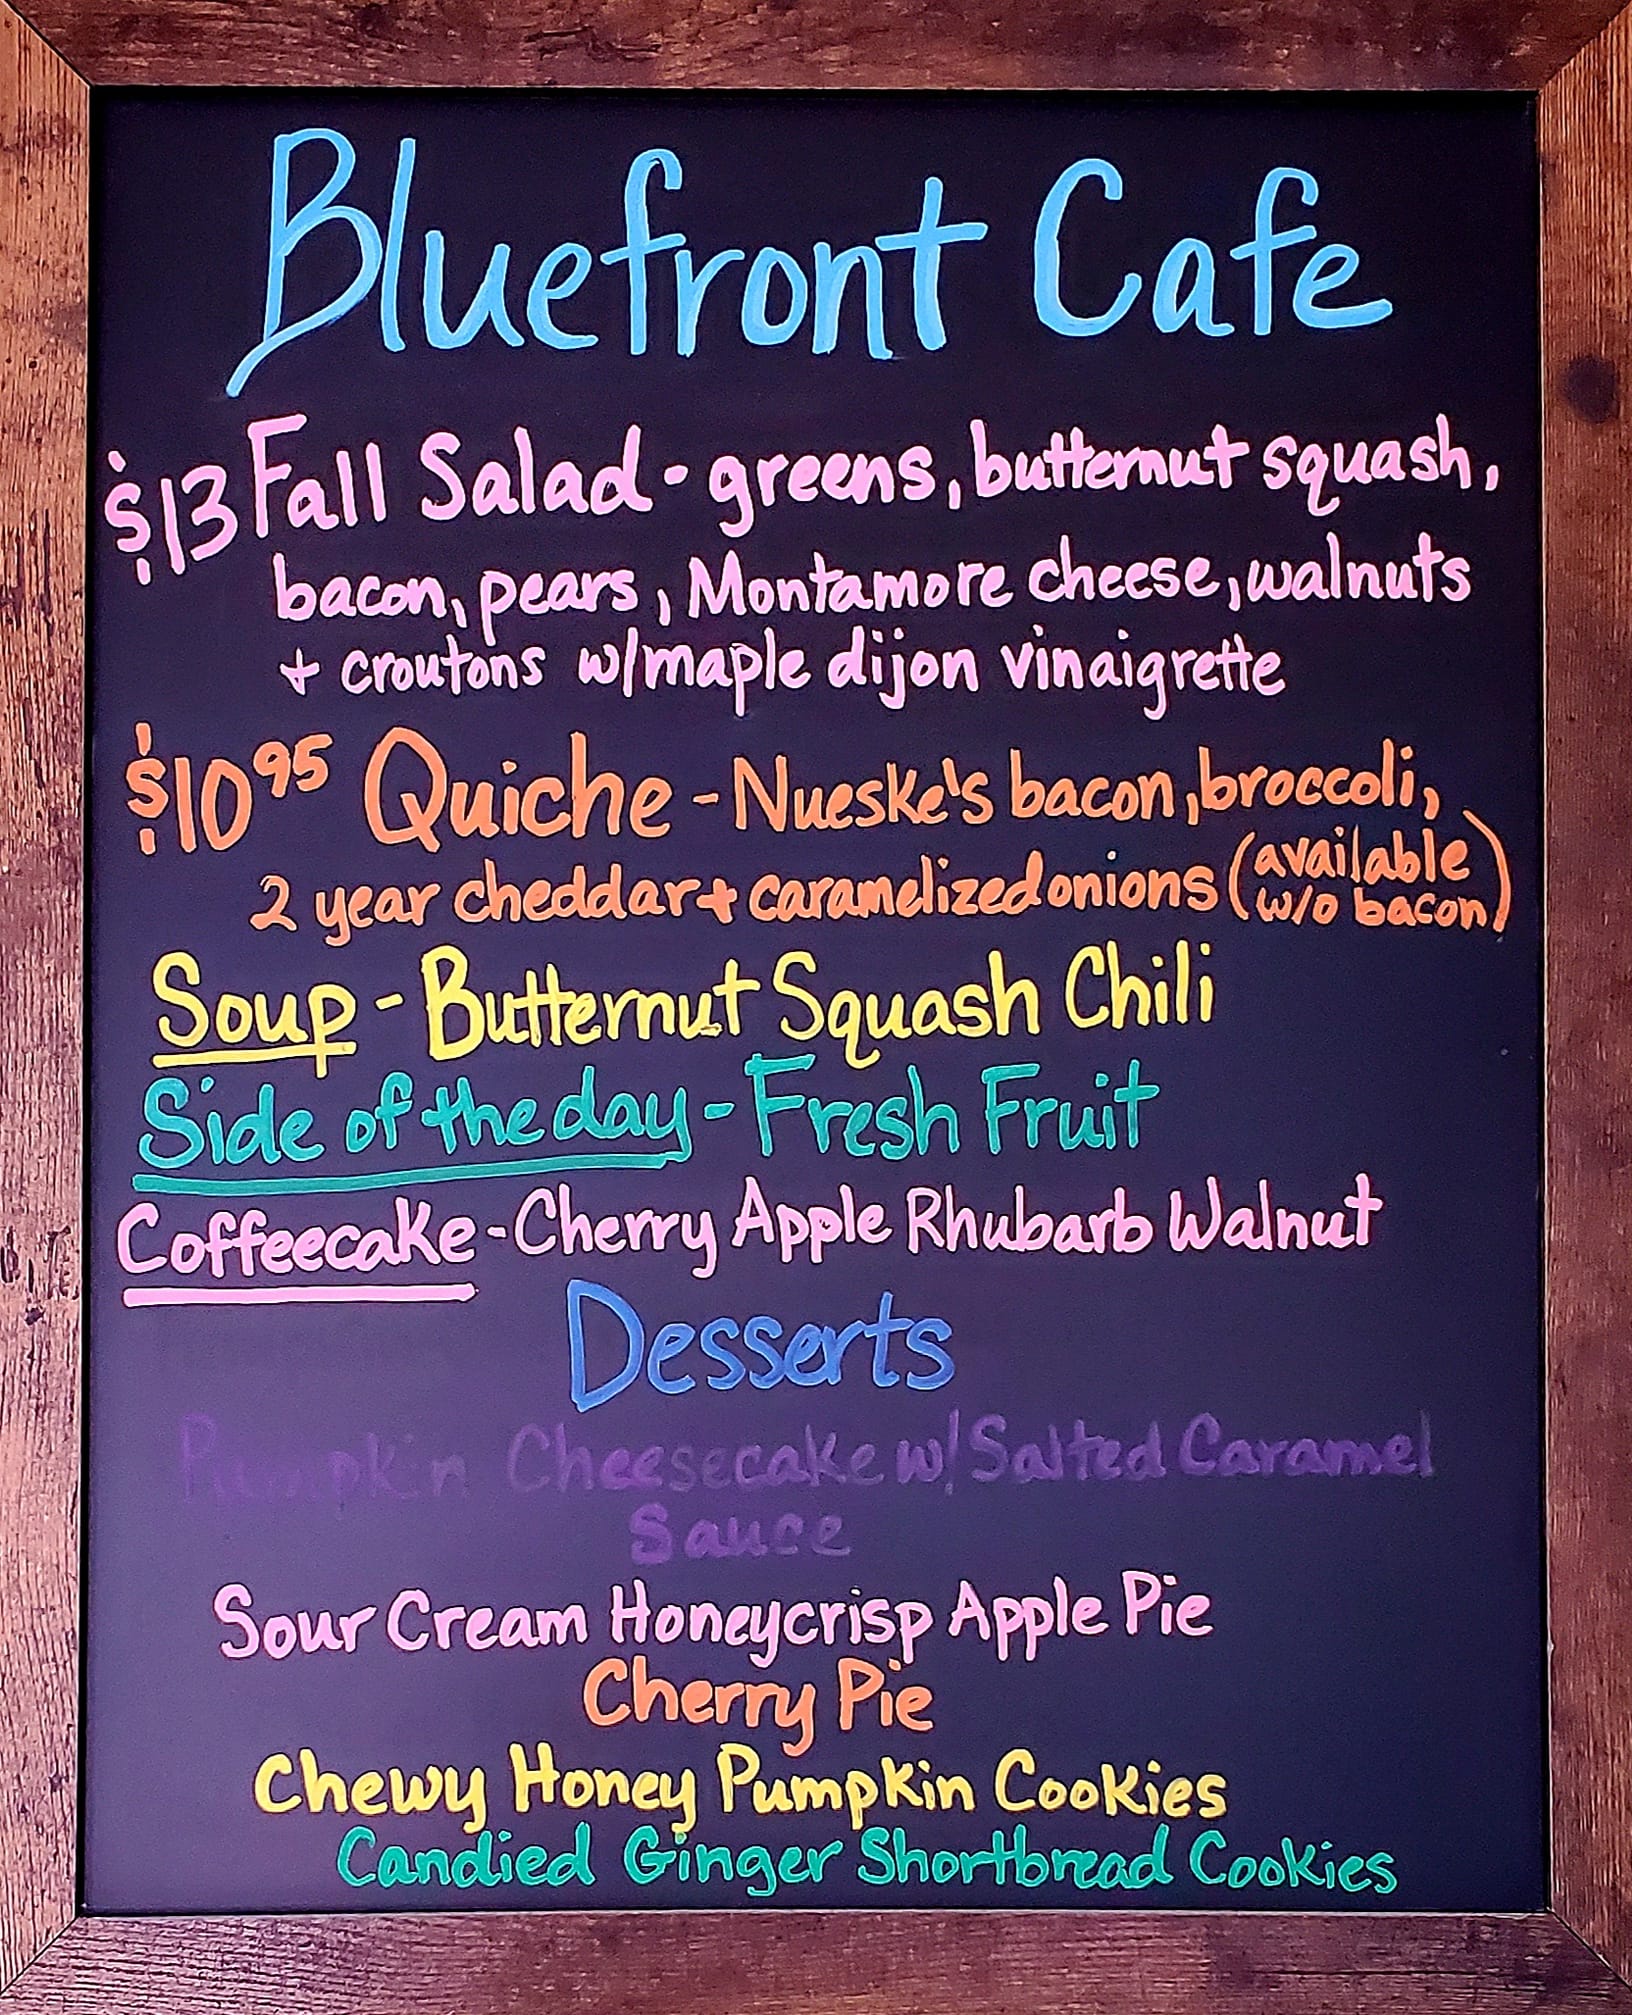 Bluefront Cafe
$13 Fall Salad - greens, butternut squash,
bacon, pears, Montamore cheese, walnuts
+ croutons w/maple dijon vinaigrette
$10 95 Quiche - Nueske's bacon, broccoli,
2 year cheddar + caramelized onions (available w/o bacon)
Soup - Butternut Squash Chili
Side of the day - Fresh Fruit
Coffeecake - Cherry Apple Rhubarb Walnut
Desserts
Pumpkin Cheesecake w/ Salted Caramel
Sauce
Sour Cream Honeycrisp Apple Pie
Cherry Pie
Chewy Honey Pumpkin Cookies
Candied Ginger Shortbread Cookies